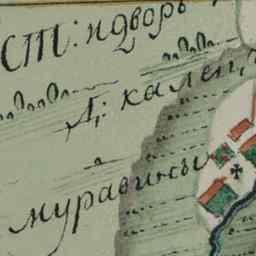 СТ: идворъ
Д; кален,
муравины